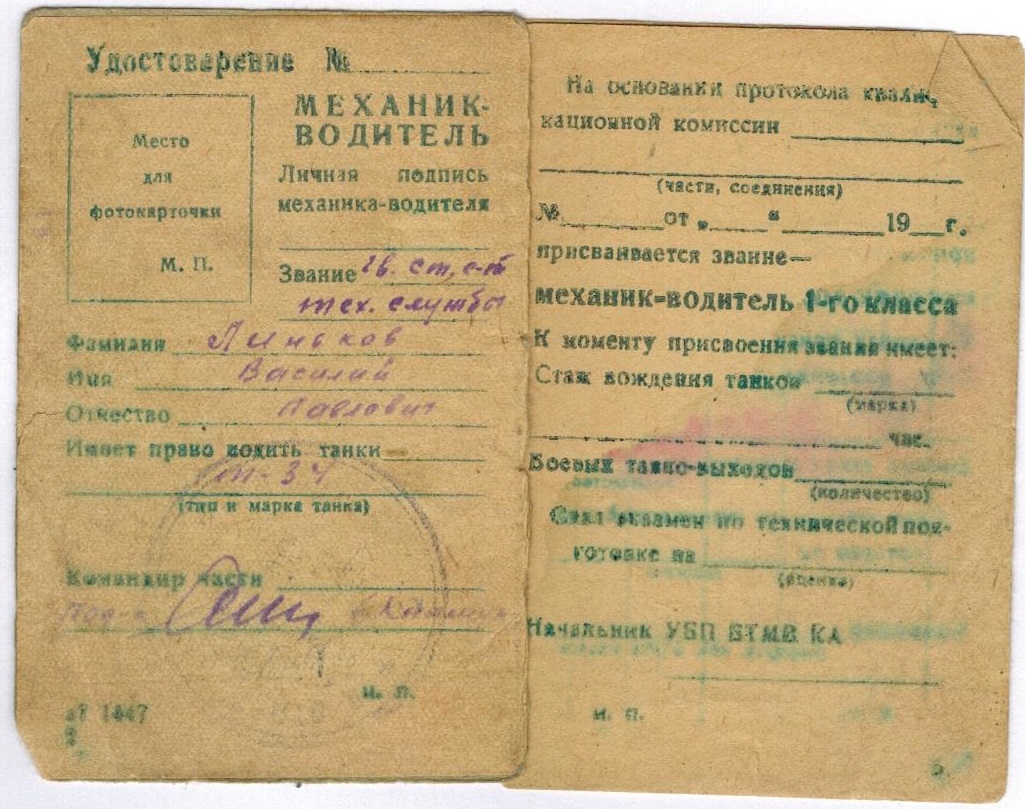 Удостоверение №
Место
для
фотокарточки
М. П.
МЕХАНИК-
ВОДИТЕЛЬ
Личная подпись
механика-водителя
Звание гв. ст. с-т
тех. службы
Фамилия Линьков
Имя Василий
Отчество Павлович
Имеет право водить танки
Т-34
(тип и марка танка)
Командир части
М. П.
1447
На основании протокола квалиф
кационной комиссии
(части, соединения)
№ от „ “ 19 г.
присваивается звание—
механик-водитель 1-го класса
К моменту присвоения звания имеет:
Стаж вождения танков
(марка)
час.
Боевых танко-выходов
(количество)
Сдал экзамен по технической под-
готовке на
(оценка)
Начальник УБП БТМВ КА
М. П.